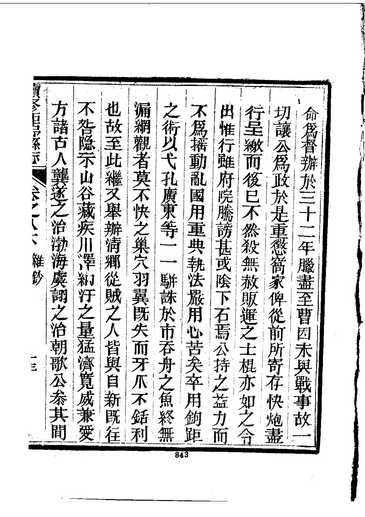 命爲督辦於三十二年臘盡至曹因未與戰事故一
切讓公爲政於是重懲窩家俾從前所寄存快炮盡
行呈繳而後已不然殺無赦販運之土棍亦如之令
出惟行雖府院騰謗甚或陰下石焉公持之益力而
不爲搖動亂國用重典執法嚴用心苦矣卒用鉤距
之術以弋孔廣東等一一駢誅於市吞舟之魚終無
漏網觀者莫不快之巢穴羽翼既失而牙爪不銛利
也故至此繼又舉辦清鄉從賊之人皆與自新既往
不咎隐示山谷藏疾川澤納汙之量猛濟寬威兼愛
方諸古人龔遂之治渤海虞詡之治朝歌公叅其間
續修鉅野縣志
卷之八下 雜鈔
十三
843